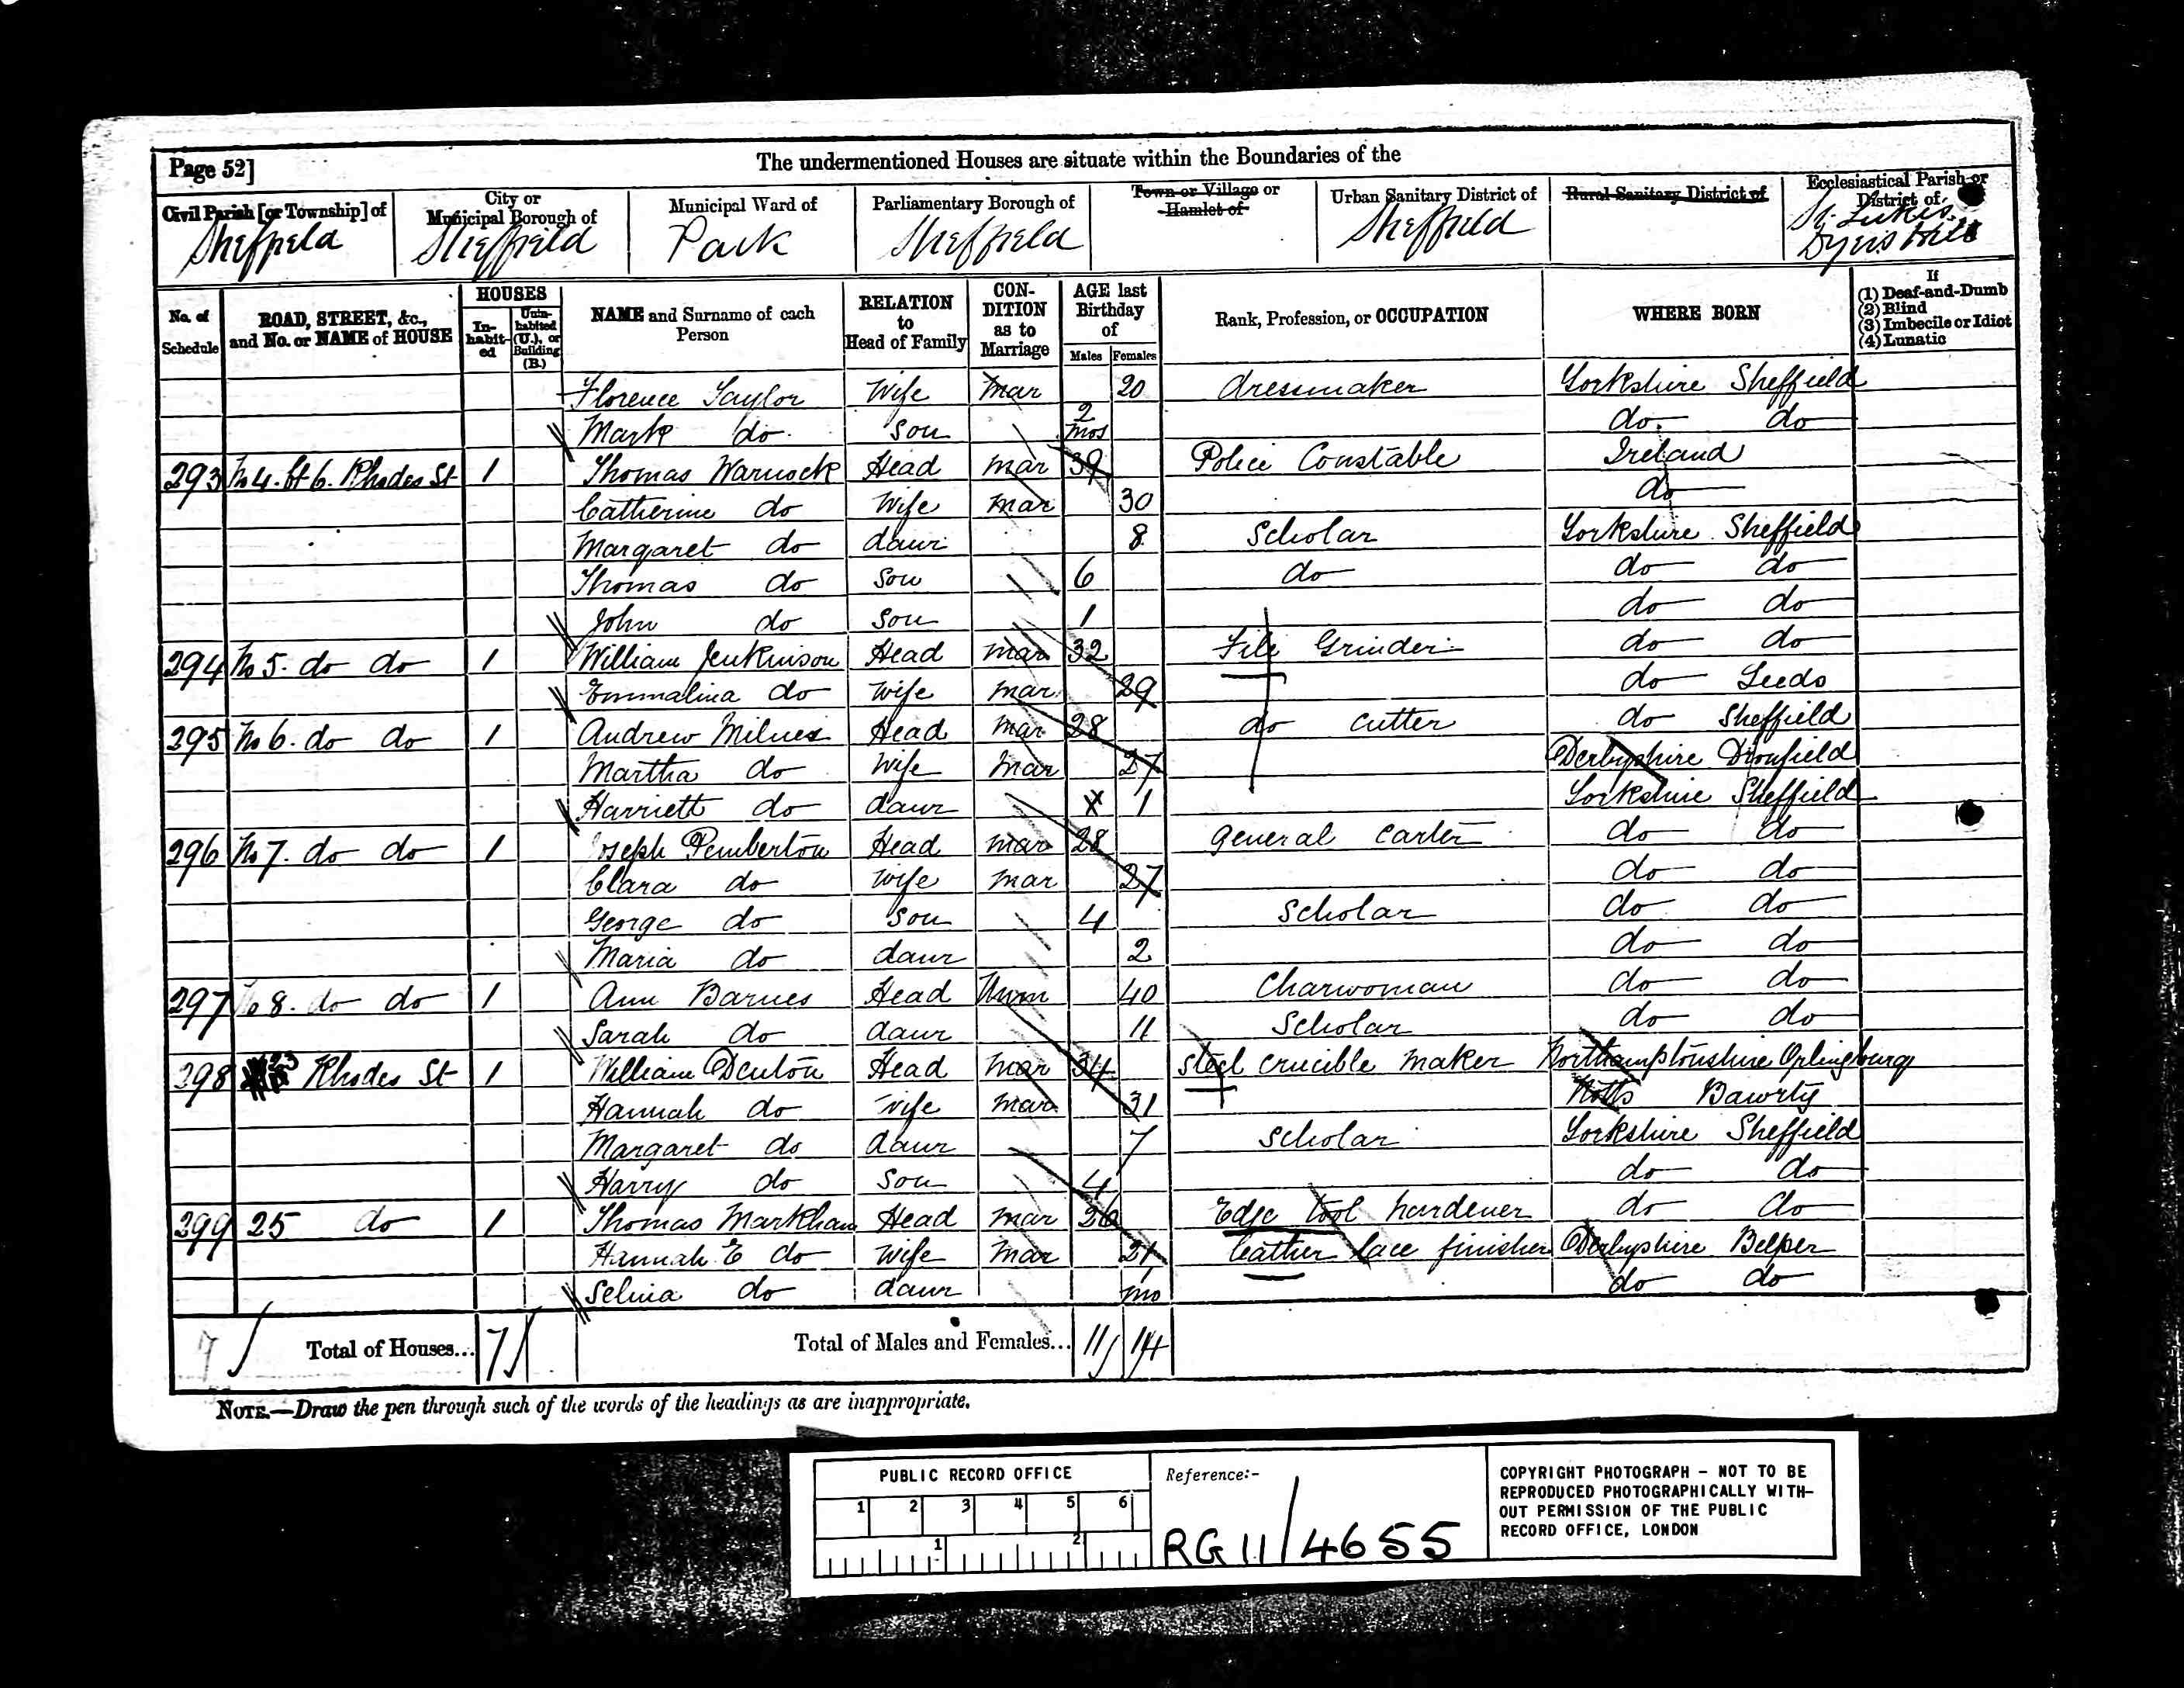 Page 52]
The undermentioned Houses are situate within the Boundaries of the
Civil Parish [or Township] of
City or Municipal Borough of
Municipal Ward of
Parliamentary Borough of
Town or Village or Hamlet of
Urban Sanitary District of
Rural Sanitary District of
Ecclesiastical Parish or District of
Sheffield Sheffield Park Sheffield Sheffield St. Lukes Dyers Hill
No. of Schedule
ROAD, STREET, &c., and No. or NAME of HOUSE
HOUSES
In-habit-ed
Unin-habited (U.), or Building (B.)
NAME and Surname of each Person
RELATION to Head of Family
CON-DITION as to Marriage
AGE last Birthday of
Males Females
Rank, Profession, or OCCUPATION
WHERE BORN
If
(1) Deaf-and-Dumb
(2) Blind
(3) Imbecile or Idiot
(4) Lunatic
Florence Taylor Wife Mar 20 dressmaker Yorkshire Sheffield
Mark do son 2 mos do do
293 No 4. Ct 6. Rhodes St 1 Thomas Warnock Head Mar 39 Police Constable Ireland
Catherine do Wife Mar 30 do
Margaret do daur 8 Scholar Yorkshire Sheffield
Thomas do Son 6 do do do
John do Son 1 do do
294 No 5. do do 1 William Jenkinson Head Mar 32 File Grinder do do
Emmalina do Wife Mar 29 do Leeds
295 No 6. do do 1 Andrew Milnes Head Mar 28 do cutter do Sheffield
Martha do Wife Mar 27 Derbyshire Dronfield
Harriett do daur X 1 Yorkshire Sheffield
296 No 7. do do 1 Joseph Pemberton Head Mar 28 General Carter do do
Clara do Wife Mar 27 do do
George do Son 4 Scholar do do
Maria do daur 2 do do
297 No 8. do do 1 Ann Barnes Head Unm 40 Charwoman do do
Sarah do daur 11 Scholar do do
298 23 Rhodes St 1 William Denton Head Mar 34 Steel crucible maker Northamptonshire Orlingburg
Hannah do Wife Mar 31 Notts Bawrty
Margaret do daur 7 Scholar Yorkshire Sheffield
Harry do Son 4 do do
299 25 do 1 Thomas Markham Head Mar 26 Edge tool hardener do do
Hannah E do Wife Mar 21 leather lace finisher Derbyshire Belper
Selina do daur 1 mo do do
7 Total of Houses... 7 Total of Males and Females... 11 14
NOTE.—Draw the pen through such of the words of the headings as are inappropriate.
PUBLIC RECORD OFFICE
1 2 3 4 5 6
1 2
Reference:-
RG 11/4655
COPYRIGHT PHOTOGRAPH - NOT TO BE
REPRODUCED PHOTOGRAPHICALLY WITH-
OUT PERMISSION OF THE PUBLIC
RECORD OFFICE, LONDON